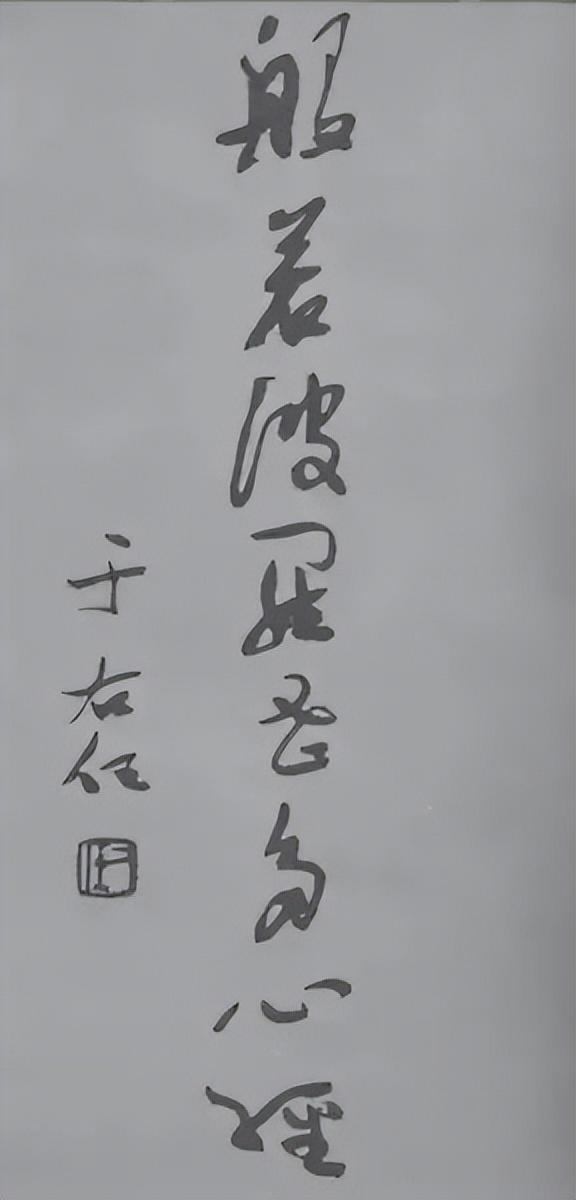 般若波羅蜜多心經
于右任